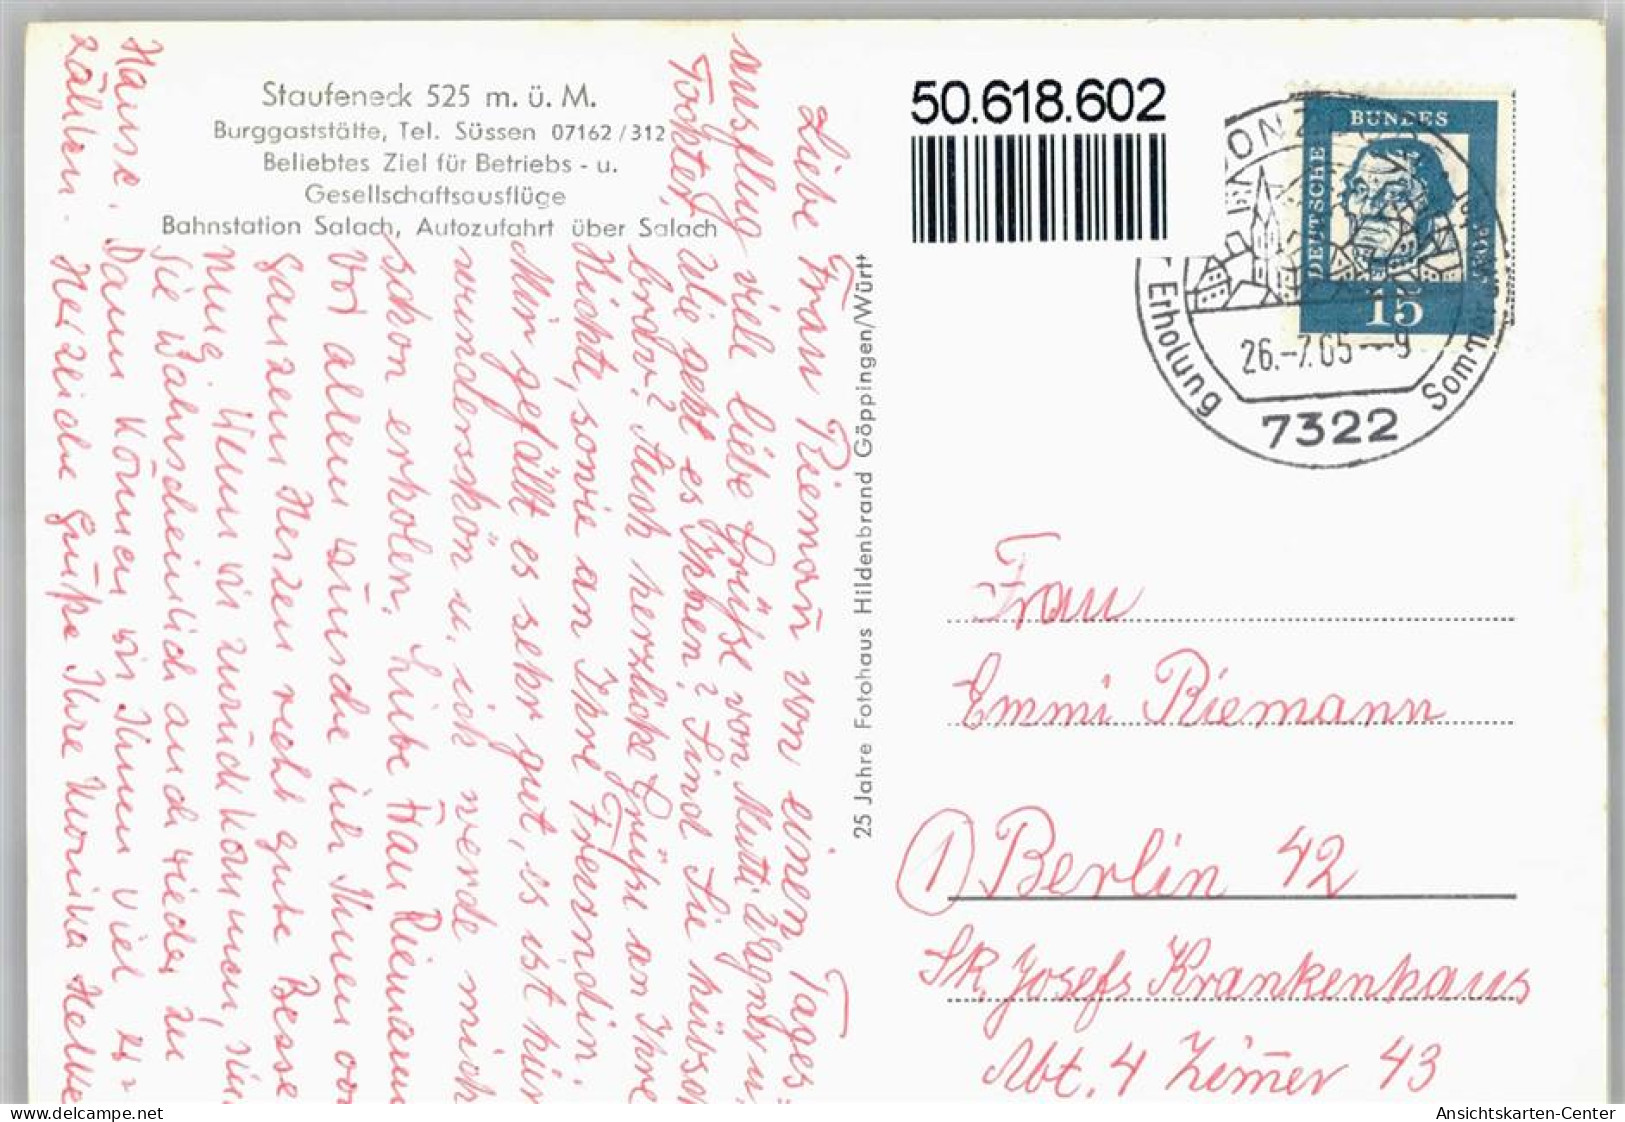 Staufeneck 525 m. ü. M.
Burggaststätte, Tel. Süssen 07162/312
Beliebtes Ziel für Betriebs - u.
Gesellschaftsausflüge
Bahnstation Salach, Autozufahrt über Salach
50.618.602
BUNDES
DEUTSCHE
15
Erholung
26.-7.65--9
Sommer
7322
25 Jahre Fotohaus Hildenbrand Göppingen/Württ
Liebe Frau Riemann von einen Tages-
ausflug viele liebe Grüße von Mutti Wagner u.
Tochter.
Wie geht es Ihnen? Sind Sie hübsch
brav? Auch herzliche Grüße an Ihre
Nichte, sowie an Ihre Freundin.
Mir gefällt es sehr gut, es ist hier
wunderschön u. ich werde mich
schon erholen. Liebe Frau Riemann
vor allem wünsche ich Ihnen von
ganzem Herzen recht gute Besse
rung. Wenn wir zurückkommen, sind
Sie wahrscheinlich auch wieder zu
Hause. Dann können wir Ihnen viel er-
zählen. Herzliche Grüße Ihre Monika
Frau
Emmi Riemann
① Berlin 42
Sk. Josefs Krankenhaus
Abt. 4 Zimmer 43
Ansichtskarten-Center
delcampe.net